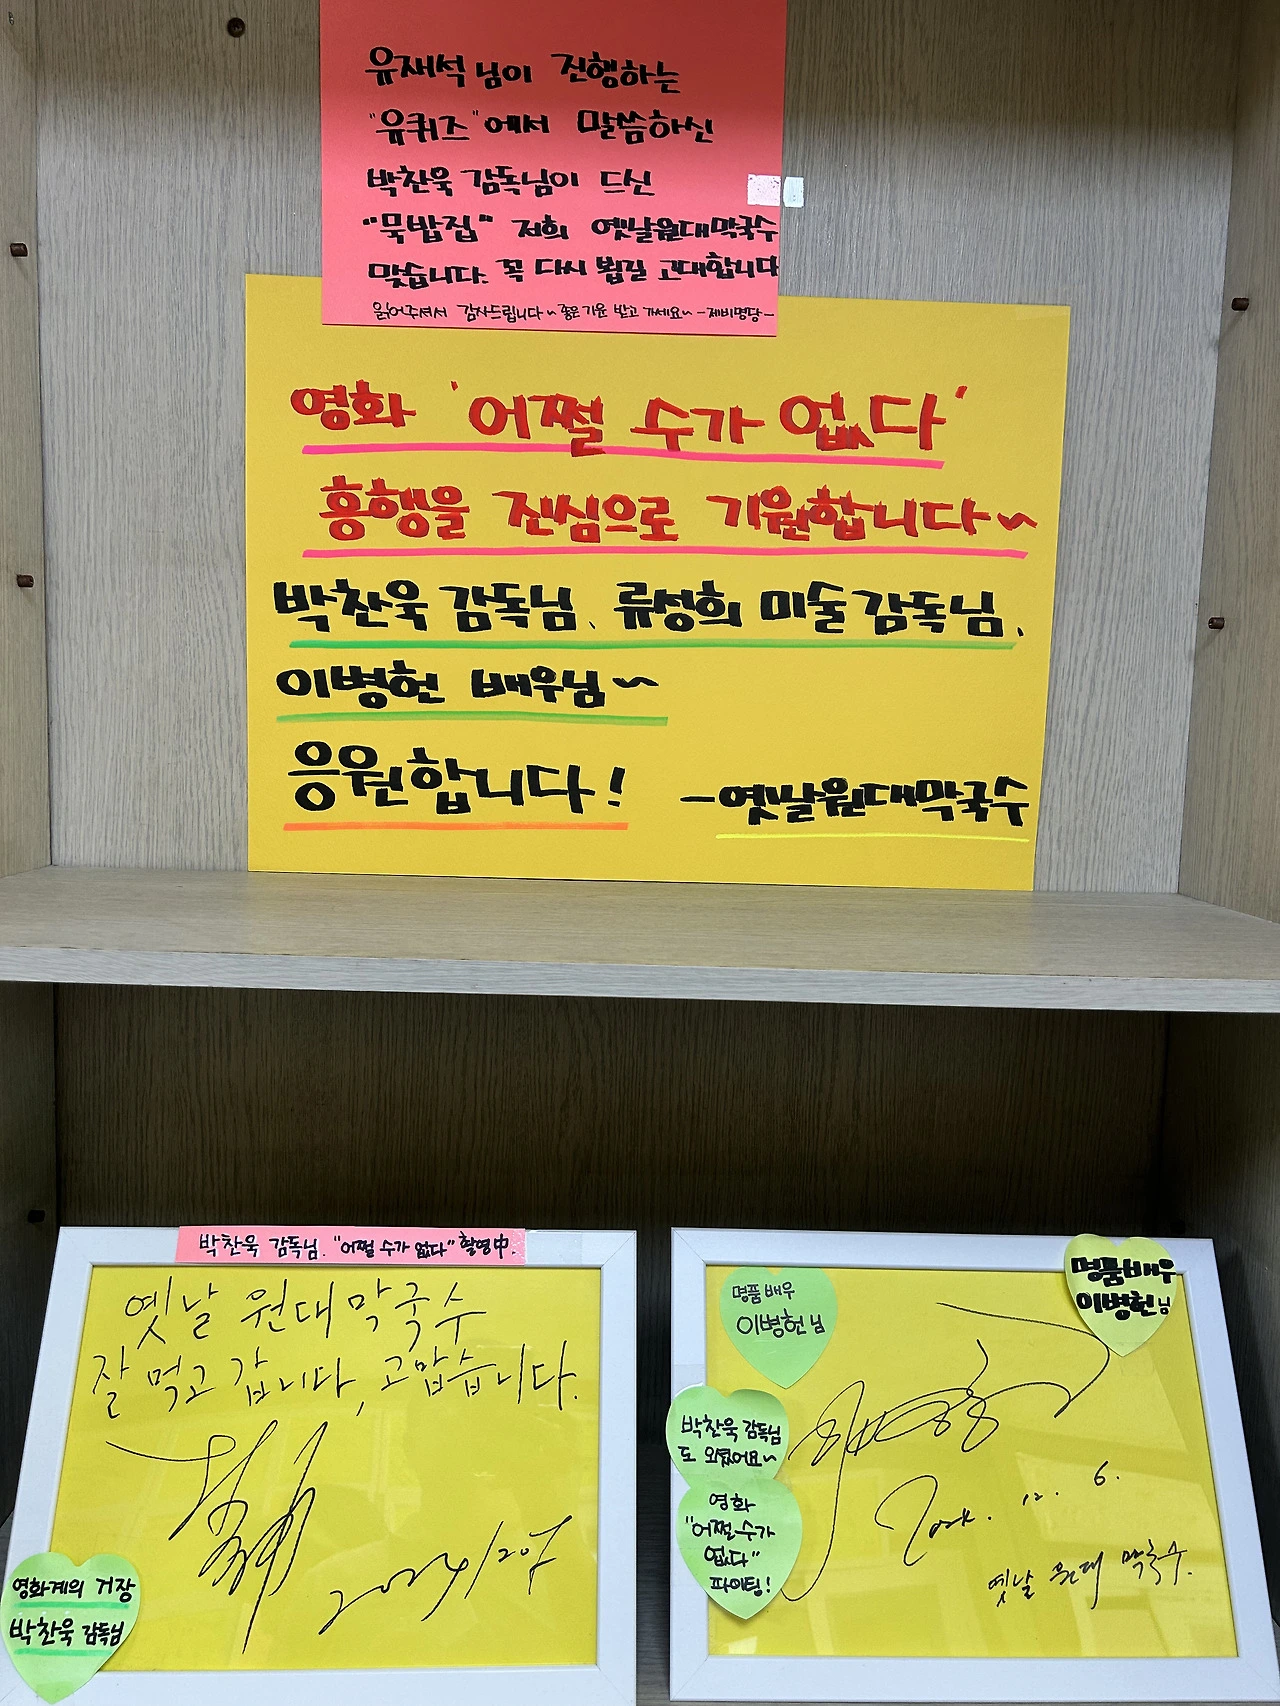 유재석님이 진행하는
"유퀴즈"에서 말씀하신
박찬욱 감독님이 드신
"묵밥집" 저희 옛날원대막국수
맞습니다. 꼭 다시 뵙길 고대합니다
읽어주셔서 감사드립니다~ 좋은 기운 받고 가세요~ -제비명당-
영화 '어쩔 수가 없다'
흥행을 진심으로 기원합니다~
박찬욱 감독님, 류성희 미술감독님,
이병헌 배우님~
응원합니다!
-옛날원대막국수
박찬욱 감독님. "어쩔 수가 없다" 촬영中.
옛날 원대막국수
잘 먹고 갑니다, 고맙습니다.
영화계의 거장
박찬욱 감독님
명품배우
이병헌님
명품배우
이병헌님
박찬욱 감독님
도 오셨어요~
영화
"어쩔수가
없다"
파이팅!
12. 6.
옛날 원대 막국수.